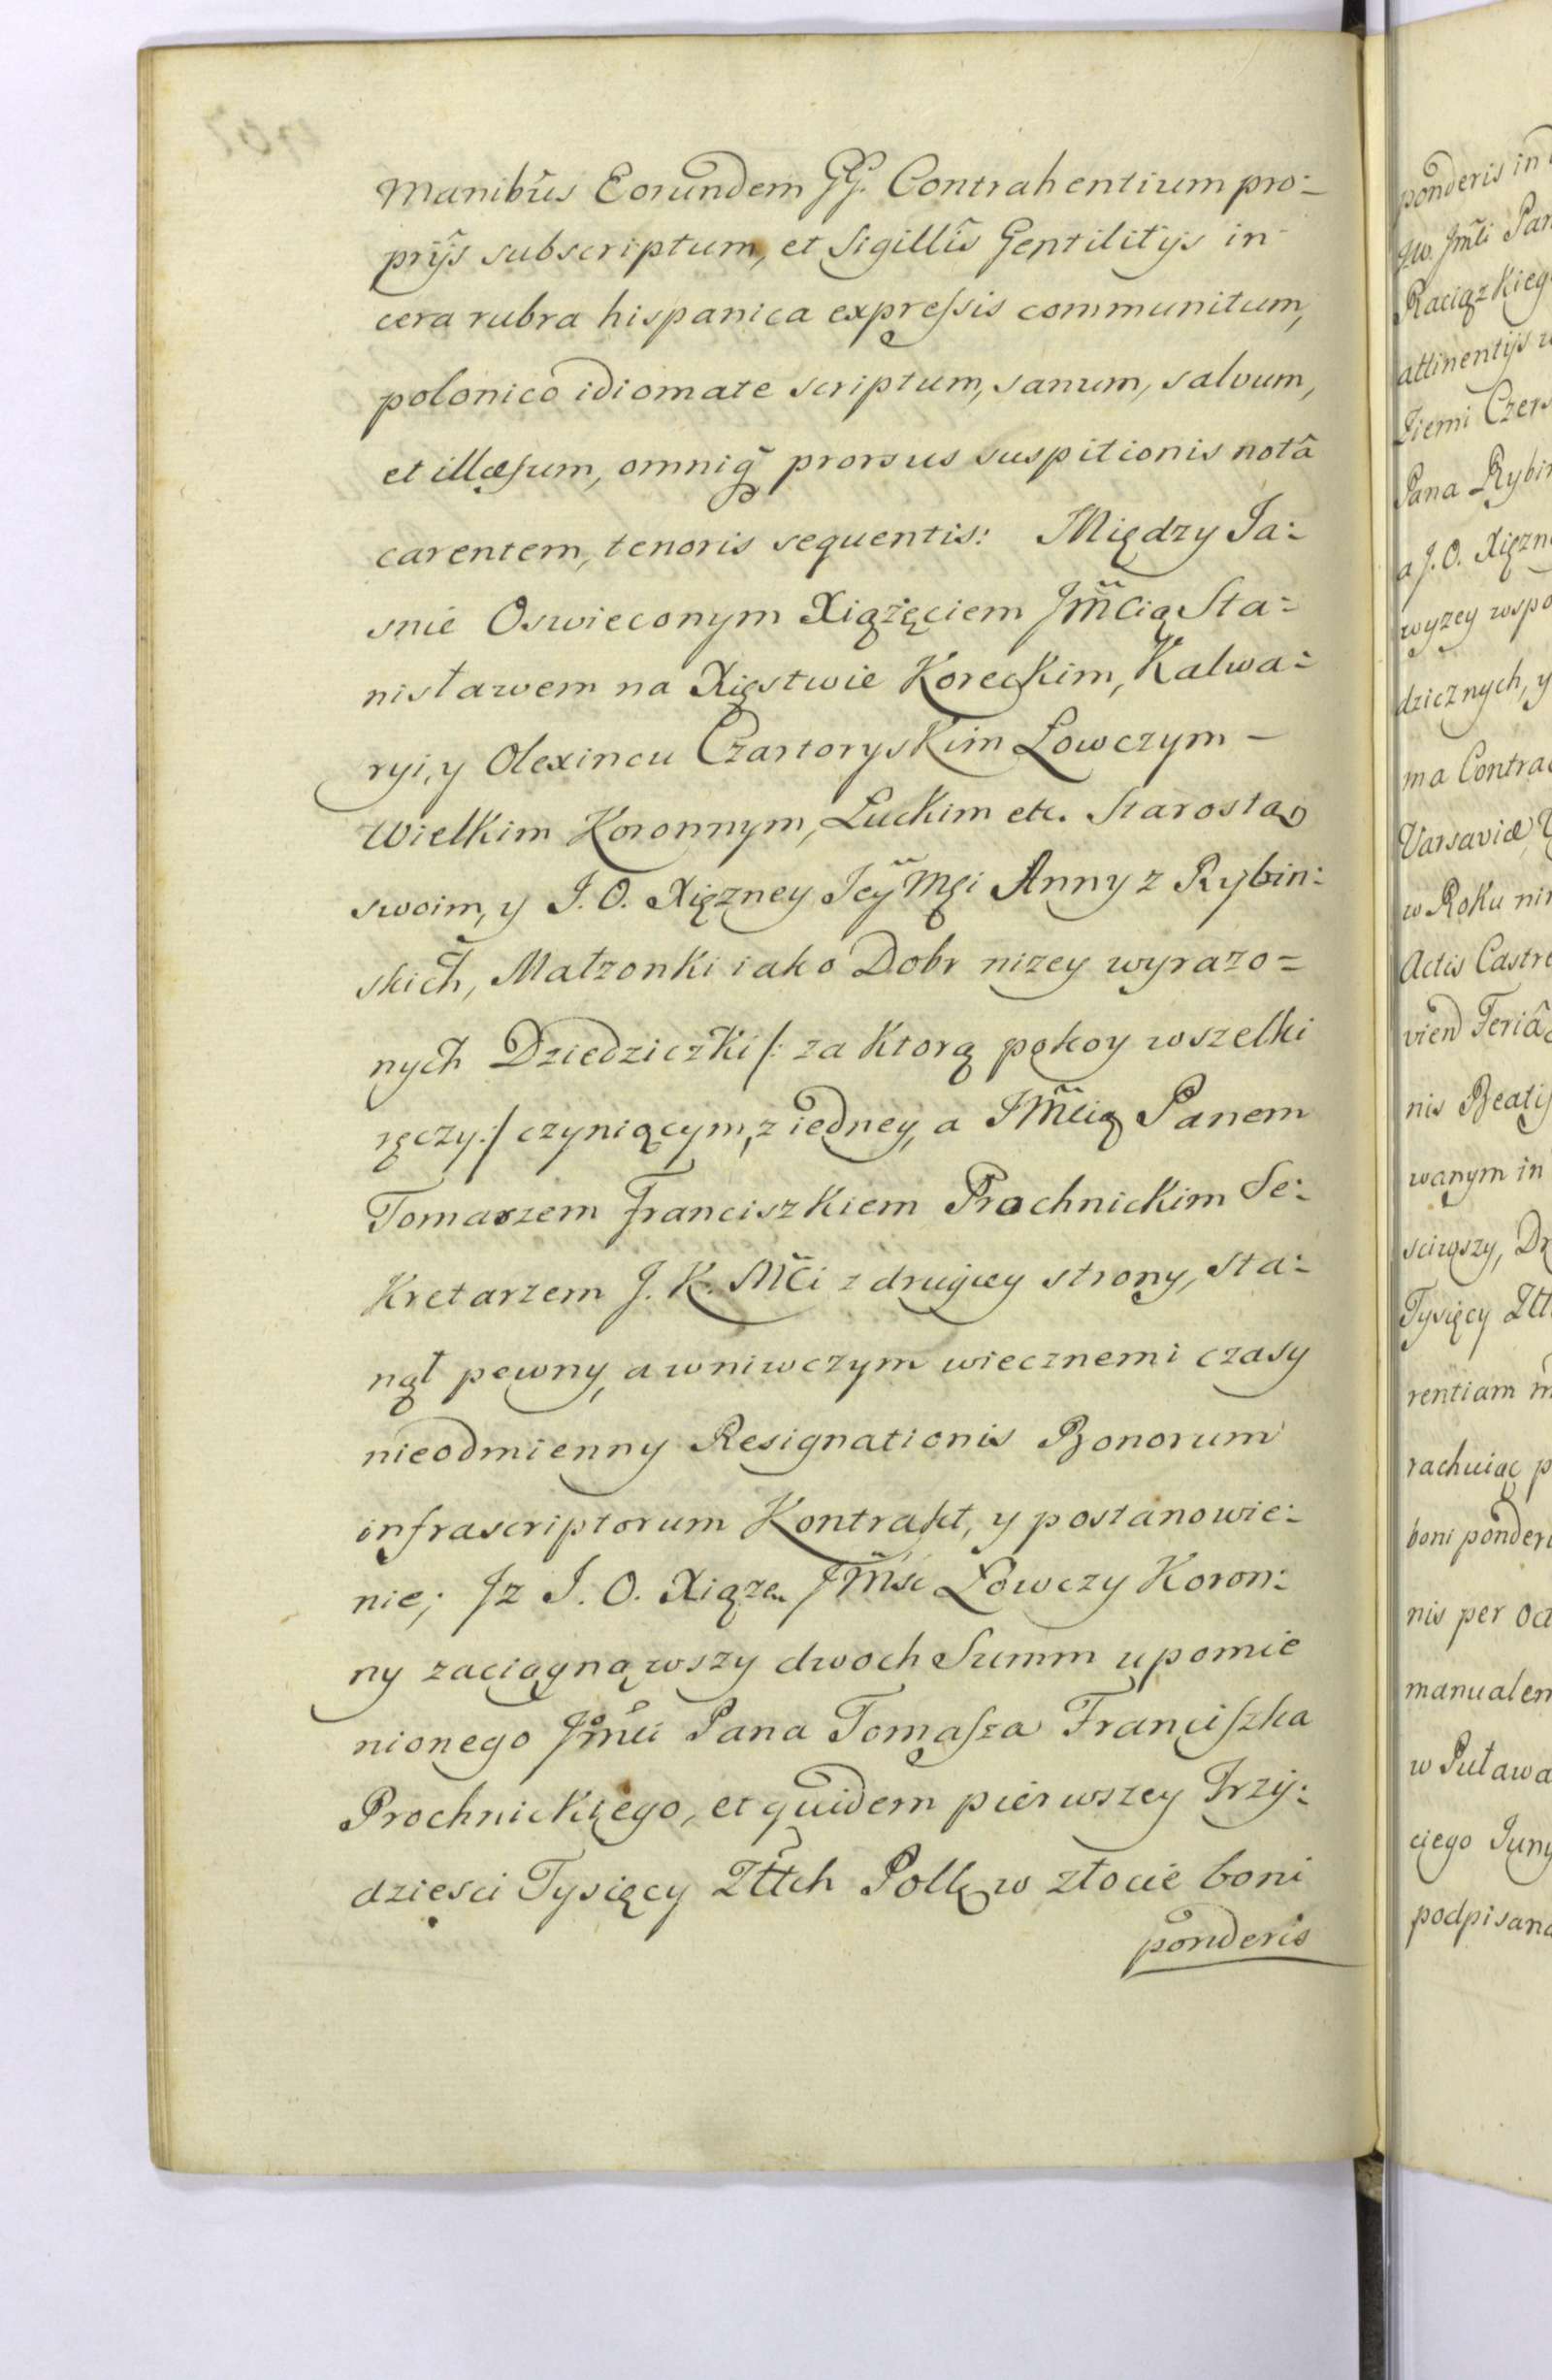 Manibus Eorundem GG. Contrahentium pro:
prijs subscriptum, et Sigillis Gentilitijs in
cera rubra hispanica expreſsis communitum,
polonico idiomate scriptum, sanum, salvum,
et illæsum, omniq̃ prorsus suspitionis notâ
carentem, tenoris sequentis: Między Ja:
snie Oswieconym Xiążęciem Jm̃cią Sta:
nisławem na Xięstwie Koreckim, Kalwa:
ryi, y Olexincu Czartoryskim Łowczym
Wielkim Koronnym, Łuckim etc. Starostą
swoim, y J. O. Xięzney Jey Mci Anny z Rybin:
skich, Małzonki iako Dobr nizey wyrazo=
nych Dziedziczki /: za ktorą pokoy wszelki
ręczy :/ czyniącym, z iedney, a Jm̃cią Panem
Tomaszem Franciszkiem Prochnickim Se:
kretarzem J. K. Mc̃i z drugiey strony, sta:
nął pewny, a wniwczym wiecznemi czasy
nieodmienny Resignationis Bonorum
infrascriptorum Kontrakt, y postanowie:
nie; Jz J. O. Xiąze Jm̃sc Łowczy Koron:
ny zaciągnąwszy dwoch Summ upomie
nionego Jmci Pana Tomaſza Franciſzka
Prochnickiego, et quidem pierwszey Trzy:
dziesci Tysięcy Złłch Polk w złocie boni
ponderis
ponderis in
Jw. Jm̃ci Pan
Raciązkieg
attinentijs
Ziemi Czers
Pana Rybin
a J. O. Xięzn
wyzey wspo
dzicznych, y
ma Contra
Varsaviæ
w Roku nin
Actis Castre
nis Beatiſ
wanym in
sciwszy, Dr
Tysięcy Złł
rentiam
rachuiąc p
boni ponder
nis per Oct
manualem
w Puława
ciego Juny
podpisan